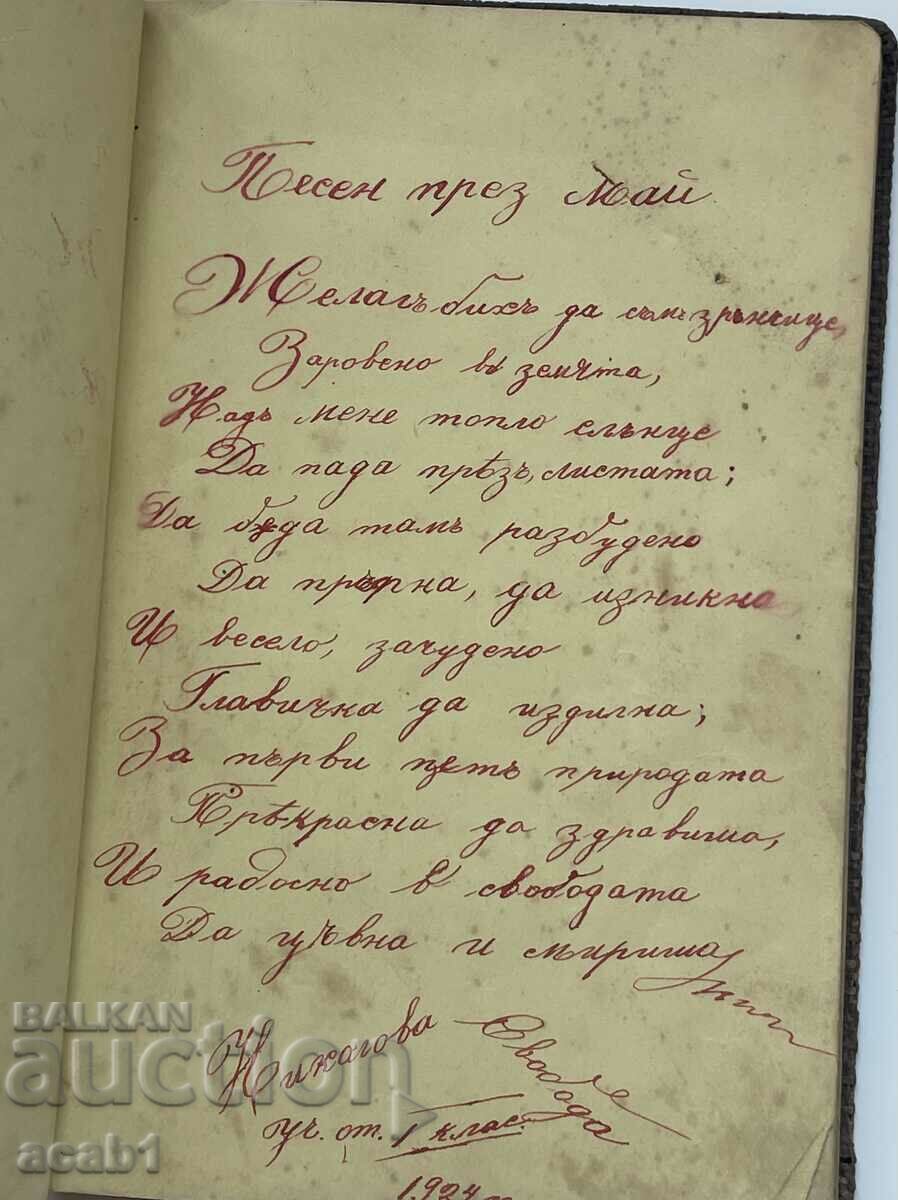 Песен през Май
Желагъ бихъ да съмъ зрънчице,
Заровено в земѣта,
Надъ мене топло слънце
Да пада прѣзъ, листата;
Да бѫда тамъ разбудено
Да пръпна, да изникна
И весело, зачудено
Главичка да издигна;
За първи пѫть природата
Прѣкрасна да здравиша,
И радосно в свободата
Да цъвна и мириша
Свобода
уч. от I клас.
1924
BALKAN
auction
acab1